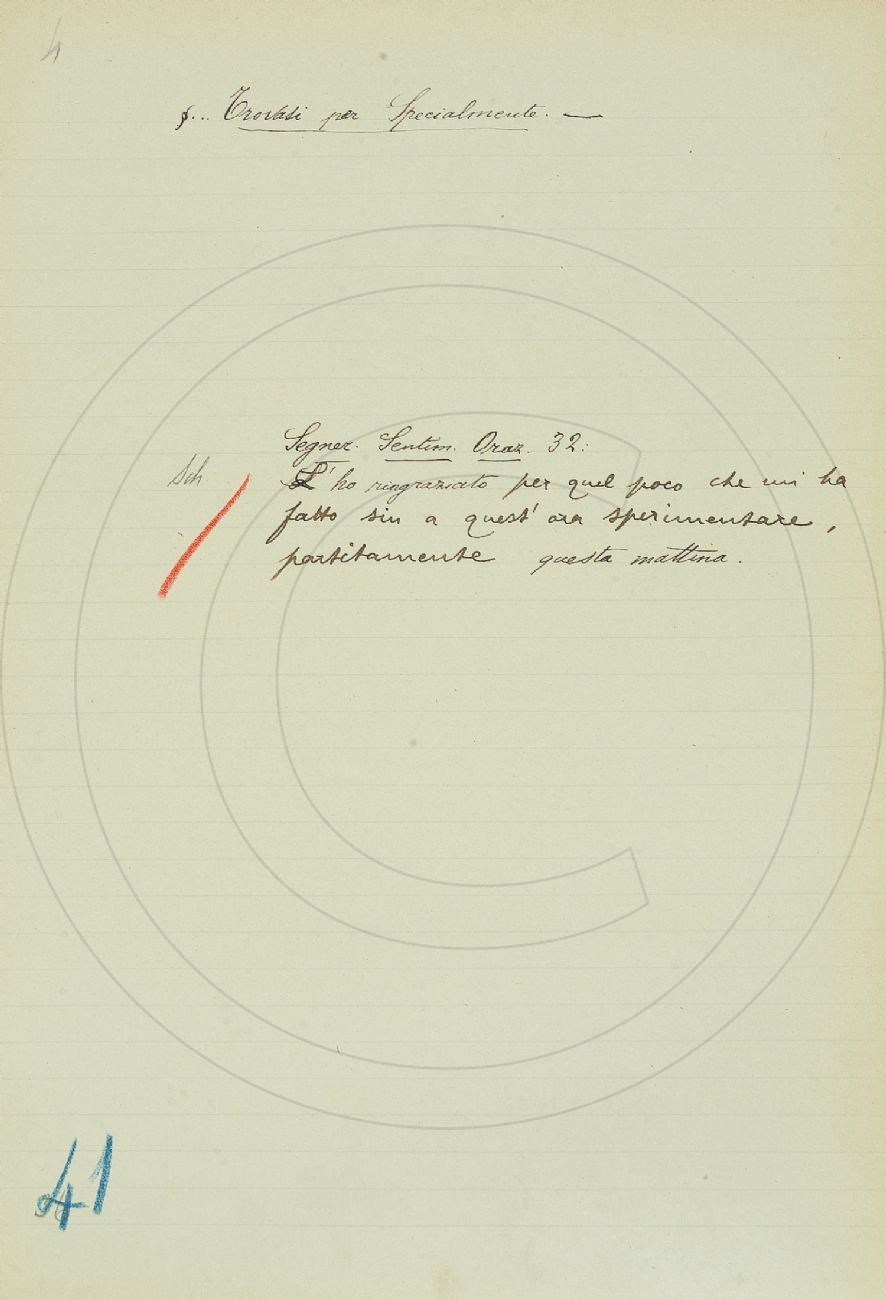 4
§... Trovasi per Specialmente. —
Segner. Sentim. Oraz. 32:
Sch
L'ho ringraziato per quel poco che mi ha
fatto sin a quest'ora sperimentare,
partitamente questa mattina.
41